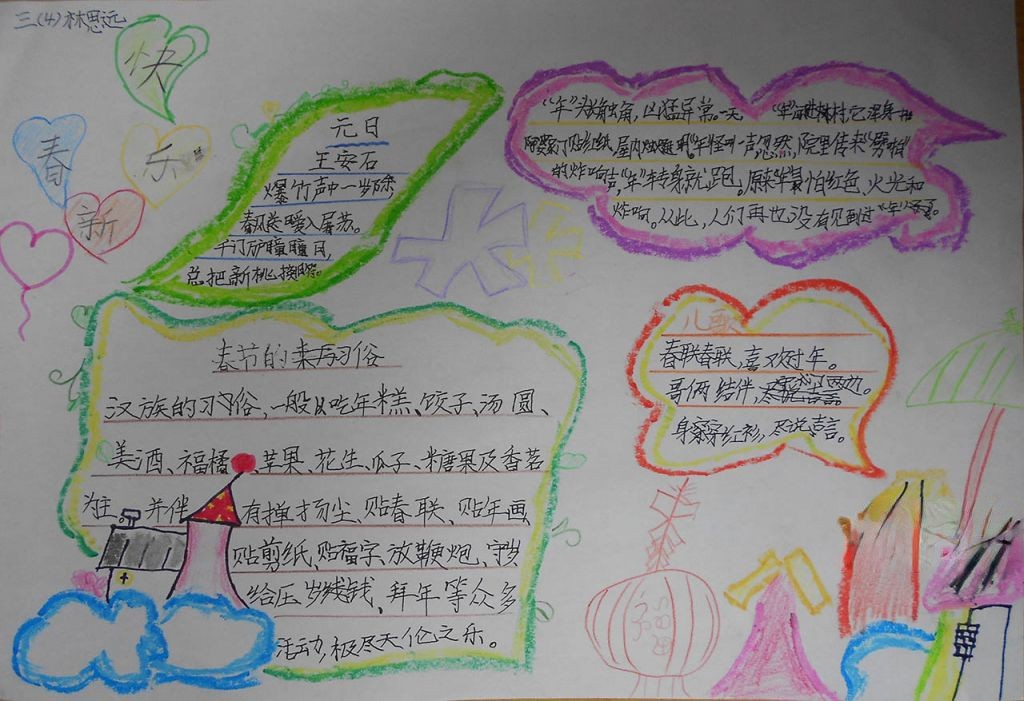 三(4)林思远
快
春
乐
新
元日
王安石
爆竹声中一岁除，
春风送暖入屠苏。
千门万户曈曈日，
总把新桃换旧符。
"年"头长触角，凶猛异常。一天
"年"
它浑身
贴红纸，屋内
"年"怪叫一声，忽然，院里传来"劈啪"
的炸响声，"年"转身就跑，原来"年"最怕红色、火光和
炸响。从此，人们再也没有见到过"年"
儿歌
春联春联，喜欢过年。
哥俩结伴，
身穿红衫，尽说吉言。
春节的来历习俗
汉族的习俗，一般以吃年糕、饺子、汤圆、
美酒、福橘、苹果、花生、瓜子、糖果及香茗
为主。并伴有掸扬尘、贴春联、贴年画、
贴剪纸、贴福字、放鞭炮、守岁
给压岁钱、拜年等众多
活动，极尽天伦之乐。